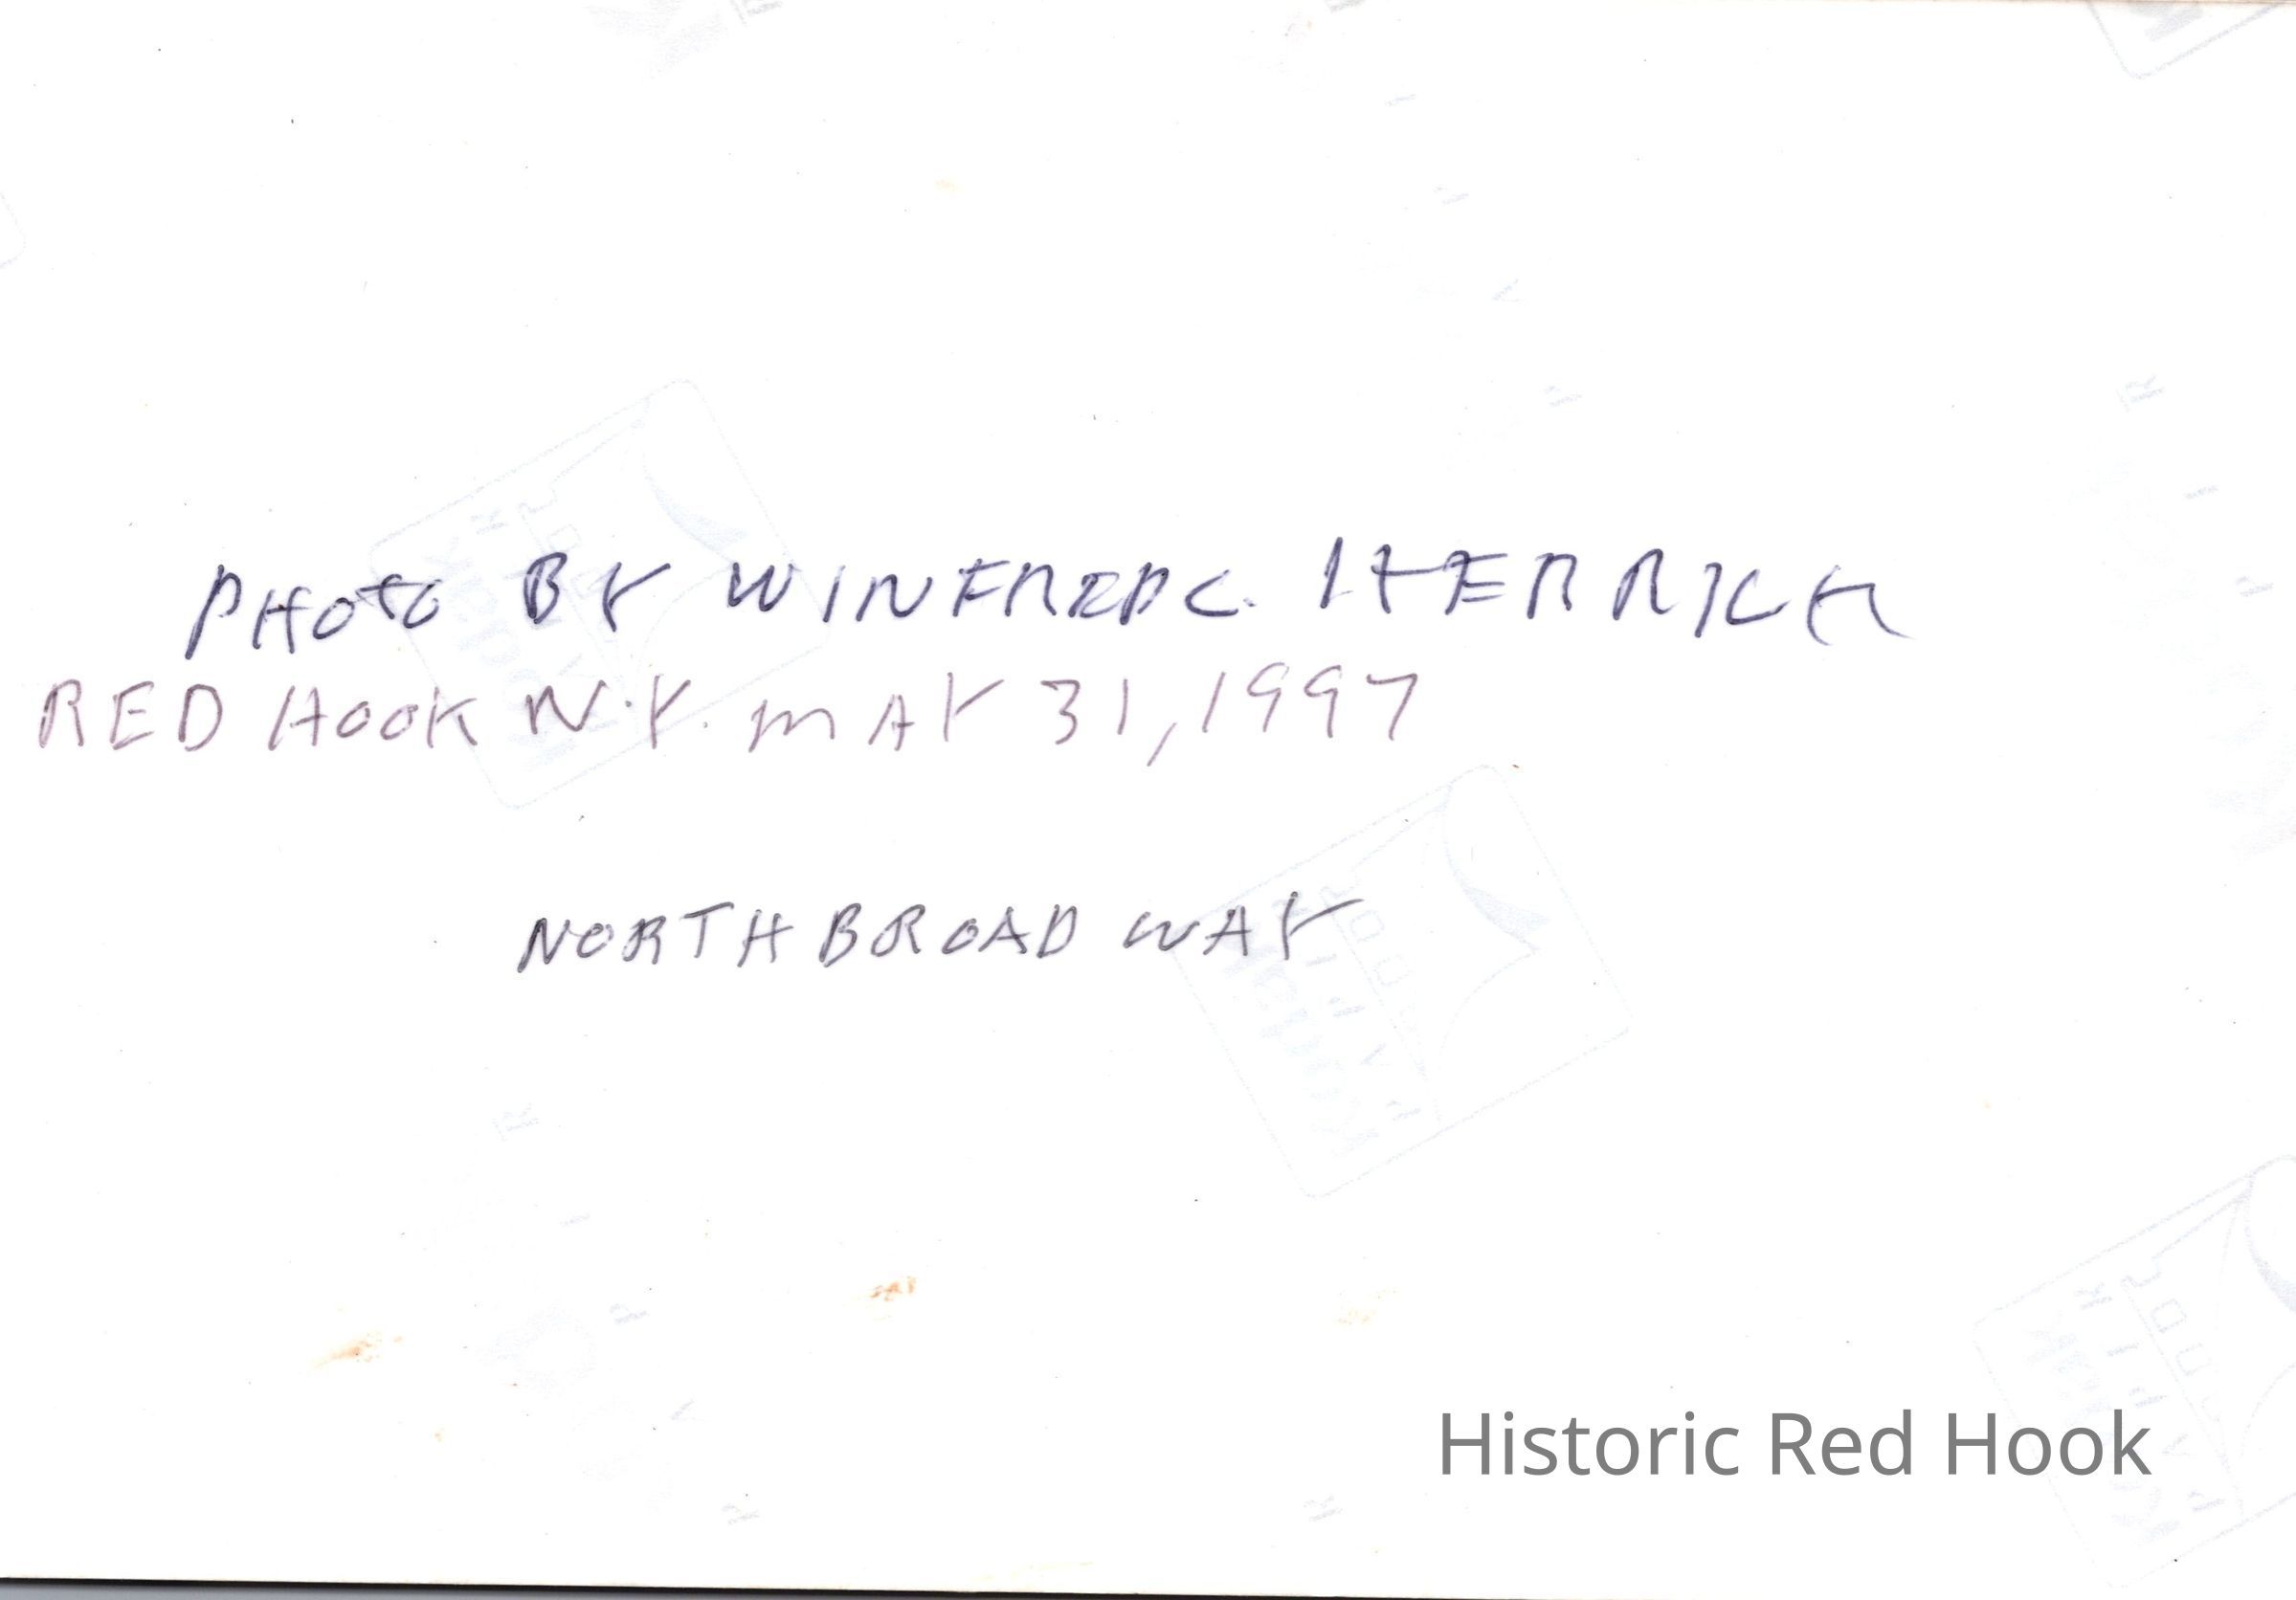 PHOTO BY WINFRED C. HERRICK
RED HOOK N.Y. MAY 31, 1997
NORTH BROAD WAY
Historic Red Hook